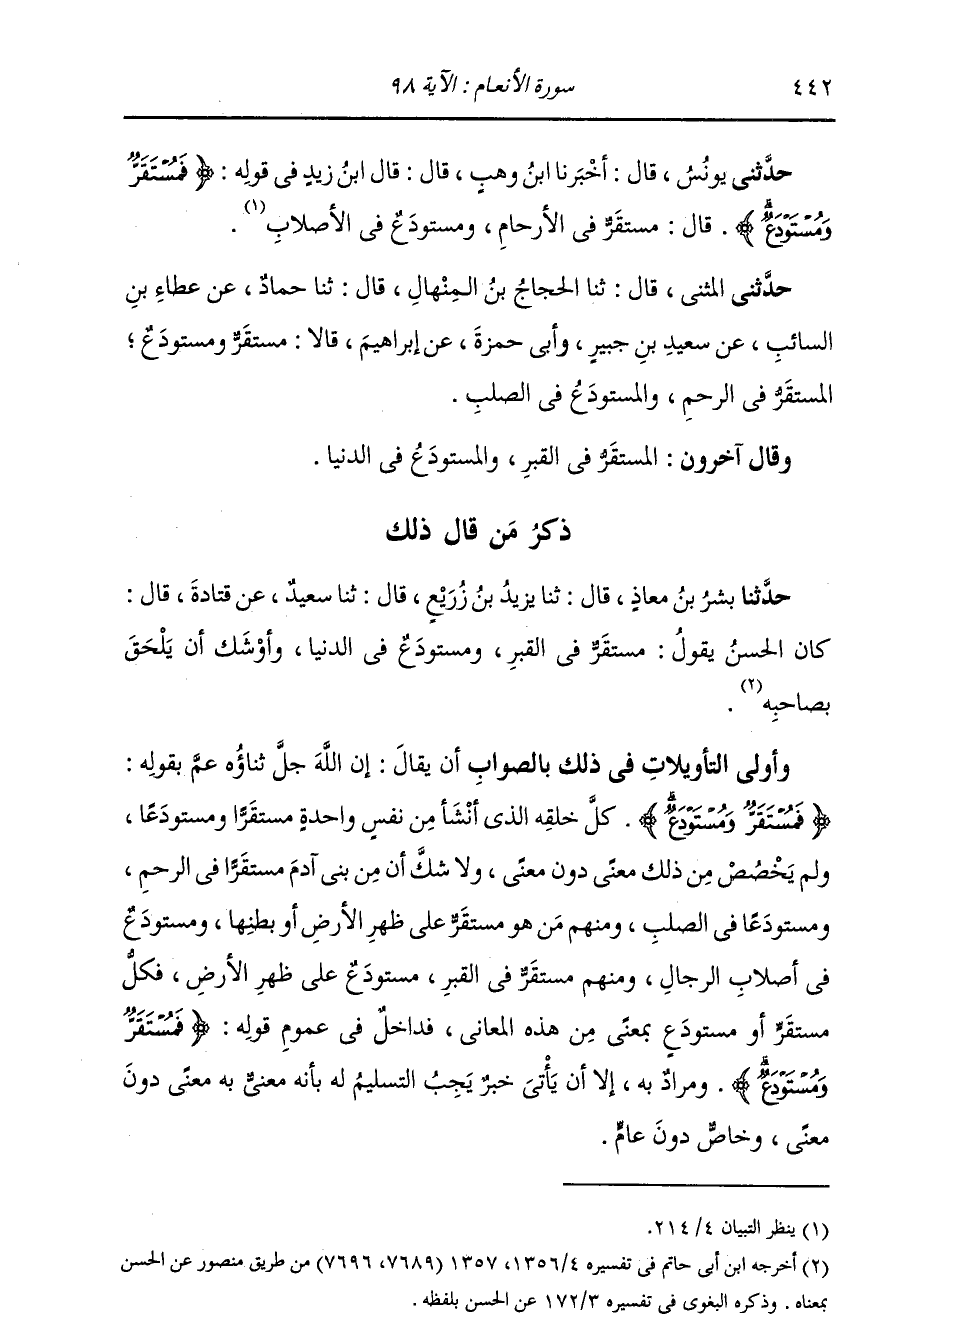 ٤٤٢ سورة الأنعام : الآية ٩٨
حدَّثنى يونُسُ ، قال : أخْبَرنا ابنُ وهبٍ ، قال : قال ابنُ زيدٍ فى قولِه : ﴿ فَمُسْتَقَرٌّ
وَمُسْتَوْدَعٌ ﴾ . قال : مستقَرٌّ فى الأرحامِ ، ومستودَعٌ فى الأصلابِ(١) .
حدَّثنى المثنى ، قال : ثنا الحجاجُ بنُ المِنْهالِ ، قال : ثنا حمادٌ ، عن عطاءِ بنِ
السائبِ ، عن سعيدِ بنِ جبيرٍ ، وأبى حمزةَ ، عن إبراهيمَ ، قالا : مستقَرٌّ ومستودَعٌ ؛
المستقَرُّ فى الرحمِ ، والمستودَعُ فى الصلبِ .
وقال آخرون : المستقَرُّ فى القبرِ ، والمستودَعُ فى الدنيا .
ذكرُ مَن قال ذلك
حدَّثنا بشرُ بنُ معاذٍ ، قال : ثنا يزيدُ بنُ زُرَيْعٍ ، قال : ثنا سعيدٌ ، عن قتادةَ ، قال :
كان الحسنُ يقولُ : مستقَرٌّ فى القبرِ ، ومستودَعٌ فى الدنيا ، وأوْشَك أن يَلْحَقَ
بصاحبِه(٢) .
وأولى التأويلاتِ فى ذلك بالصوابِ أن يقالَ : إن اللَّهَ جلَّ ثناؤُه عمَّ بقولِه :
﴿ فَمُسْتَقَرٌّ وَمُسْتَوْدَعٌ ﴾ . كلَّ خلقِه الذى أنْشَأ مِن نفسٍ واحدةٍ مستقَرًّا ومستودَعًا ،
ولم يَخْصُصْ مِن ذلك معنًى دون معنًى ، ولا شكَّ أن مِن بنى آدمَ مستقَرًّا فى الرحمِ ،
ومستودَعًا فى الصلبِ ، ومنهم مَن هو مستقَرٌّ على ظهرِ الأرضِ أو بطنِها ، ومستودَعٌ
فى أصلابِ الرجالِ ، ومنهم مستقَرٌّ فى القبرِ ، مستودَعٌ على ظهرِ الأرضِ ، فكلُّ
مستقَرٍّ أو مستودَعٍ بمعنًى مِن هذه المعانى ، فداخلٌ فى عمومِ قولِه : ﴿ فَمُسْتَقَرٌّ
وَمُسْتَوْدَعٌ ﴾ . ومرادٌ به ، إلا أن يَأْتىَ خبرٌ يَجِبُ التسليمُ له بأنه معنىٌّ به معنًى دونَ
معنًى ، وخاصٌّ دونَ عامٍّ .
(١) ينظر التبيان ٤/ ٢١٤.
(٢) أخرجه ابن أبى حاتم فى تفسيره ١٣٥٦/٤، ١٣٥٧ (٧٦٨٩، ٧٦٩٦) من طريق منصور عن الحسن
بمعناه . وذكره البغوى فى تفسيره ١٧٢/٣ عن الحسن بلفظه .